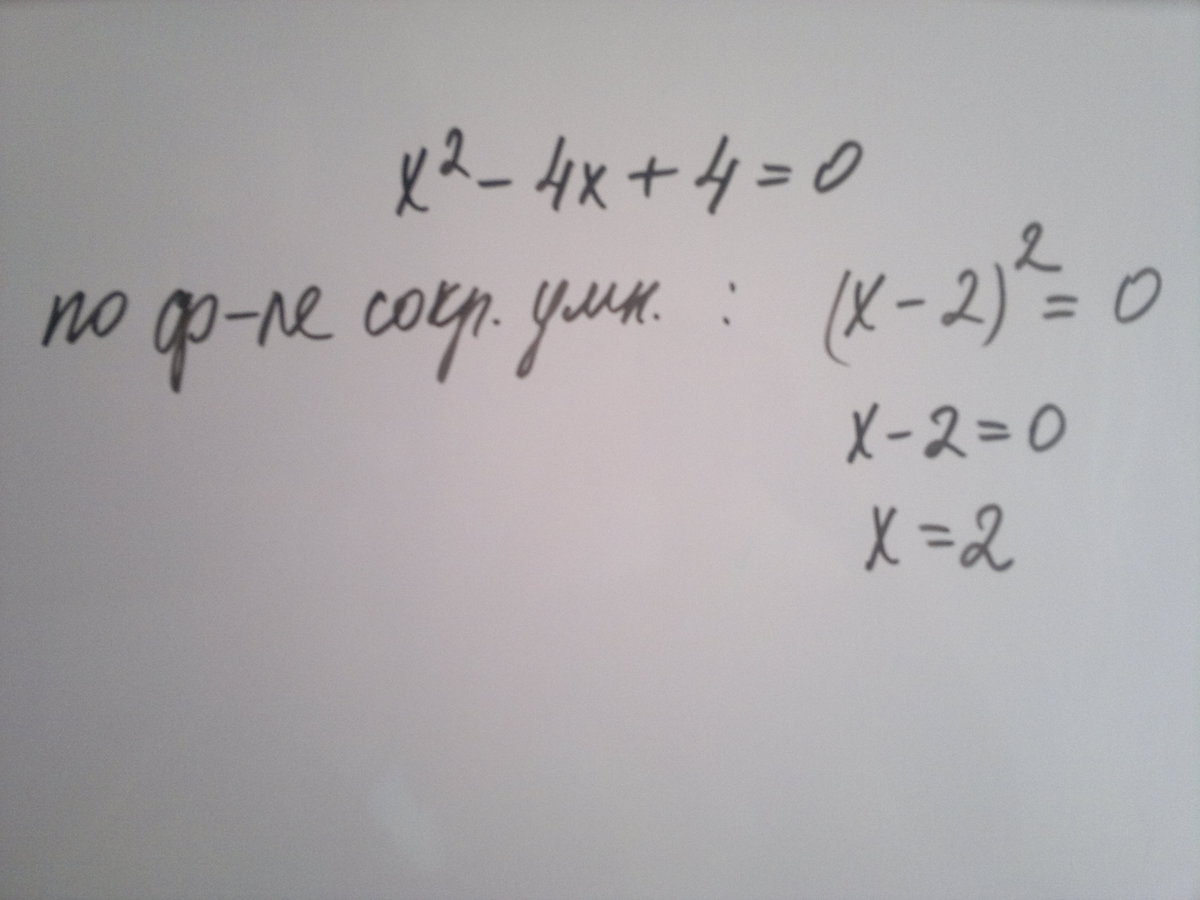 x² - 4x + 4 = 0
по ф-ле сокр. умн. : (x - 2)² = 0
x - 2 = 0
x = 2